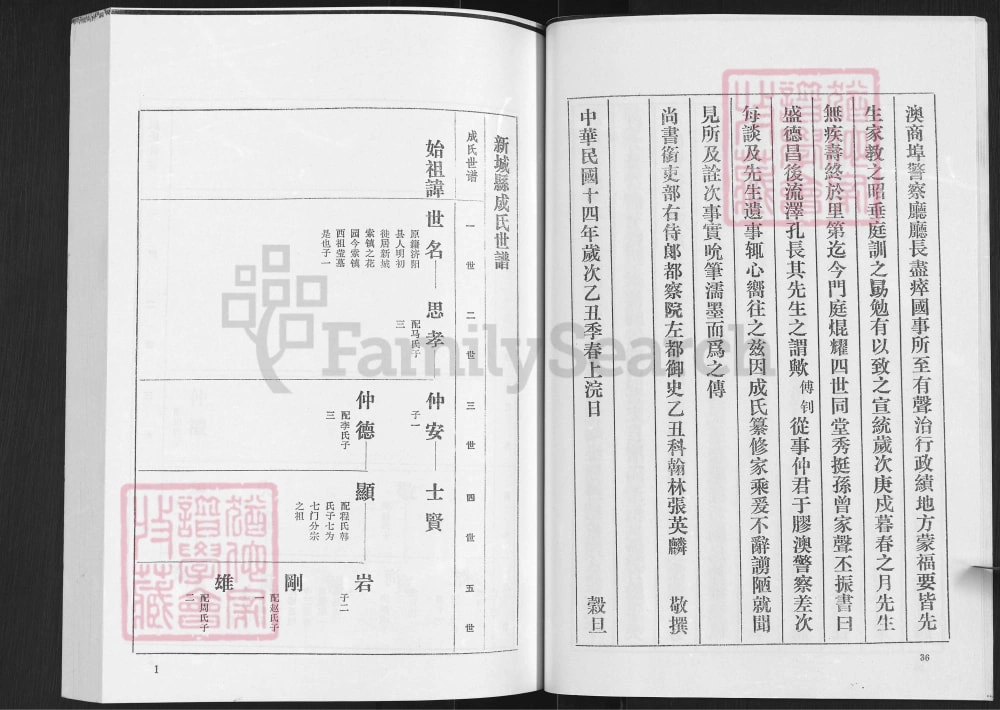 澳商埠警察廳廳長盡瘁國事所至有聲治行政績地方蒙福要皆先
生家教之昭垂庭訓之勗勉有以致之宣統歲次庚戌暮春之月先生
無疾壽終於里第迄今門庭焜耀四世同堂秀挺孫曾家聲丕振書曰
盛德昌後流澤孔長其先生之謂歟 傅钊 從事仲君于膠澳警察差次
每談及先生遺事輒心嚮往之茲因成氏纂修家乘爰不辭謭陋就聞
見所及詮次事實吮筆濡墨而爲之傳
尚書銜吏部右侍郎都察院左都御史乙丑科翰林張英麟 敬撰
中華民國十四年歲次乙丑季春上浣日 穀旦
36
新城縣成氏世譜
成氏世谱
一世 二世 三世 四世 五世
始祖諱世名
原籍济阳
县人明初
徙居新城
索镇之花
园今索镇
西祖茔墓
是也子一
思孝
配马氏子
三
仲安
子一
士賢
仲德
配李氏子
三
顯
配程氏韩
氏子七为
七门分宗
之祖
岩
子二
剛
配赵氏子
一
雄
配周氏子
二
1
FamilySearch